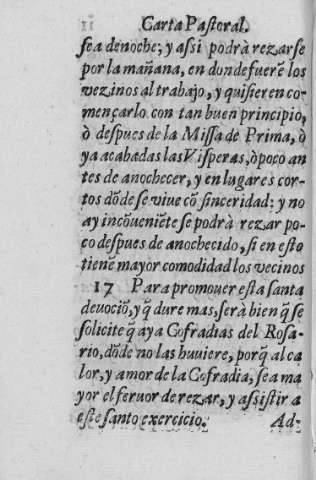 Carta Pastoral.
se a denoche; y assi podrà rezarse
por la mañana, en donde fuerẽ los
vezinos al trabajo, y quisieren co
mençarlo con tan buen principio,
ò despues de la Missa de Prima, ò
ya acabadas las Visperas, òpoco an
tes de anochecer, y en lugares cor-
tos dõde se viue cõ sinceridad: y no
ay incõueniẽte se podrà rezar po-
co despues de anochecido, si en esto
tienẽ mayor comodidad los vecinos
17 Para promouer esta santa
deuociõ, y q̃ dure mas, serà bien q̃ se
solicite q̃ aya Cofradias del Rosa-
rio, dõde no las huuiere, porq̃ al ca
lor, y amor de la Cofradia, sea ma
yor el feruor de rezar, y assistir a
este santo exercicio. Ad-